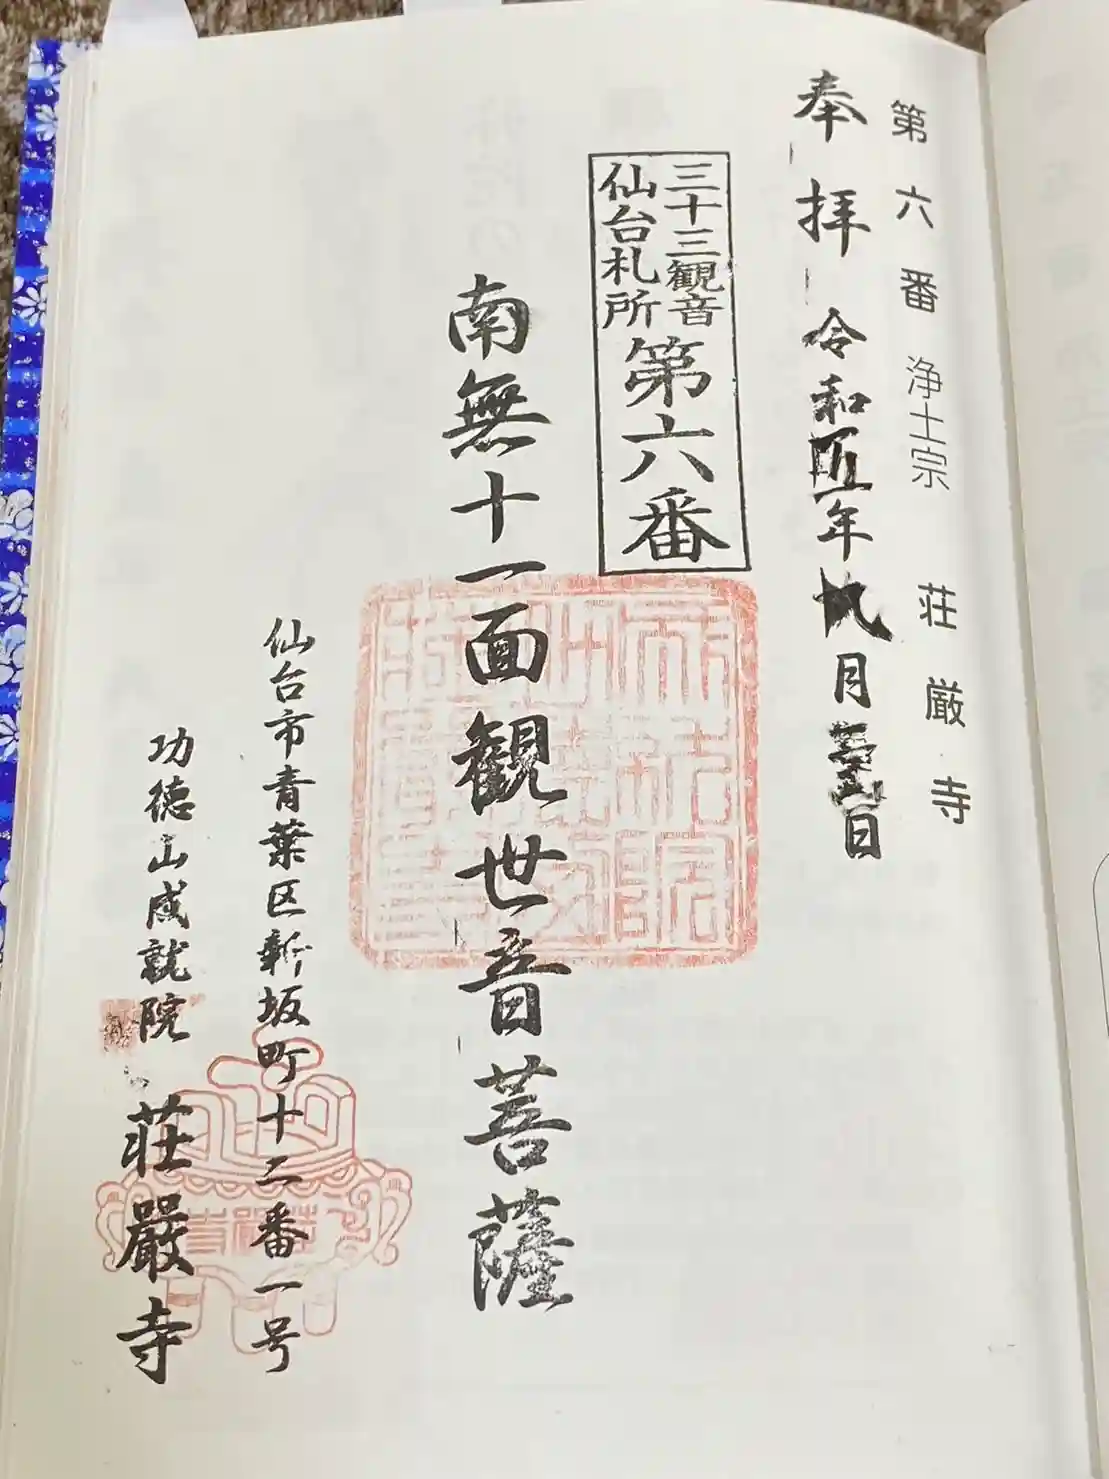 第六番 浄土宗 荘厳寺
奉拝 令和五年九月 日
三十三観音
仙台札所
第六番
南無十一面観世音菩薩
仙台市青葉区新坂町十二番一号
功徳山成就院 荘嚴寺